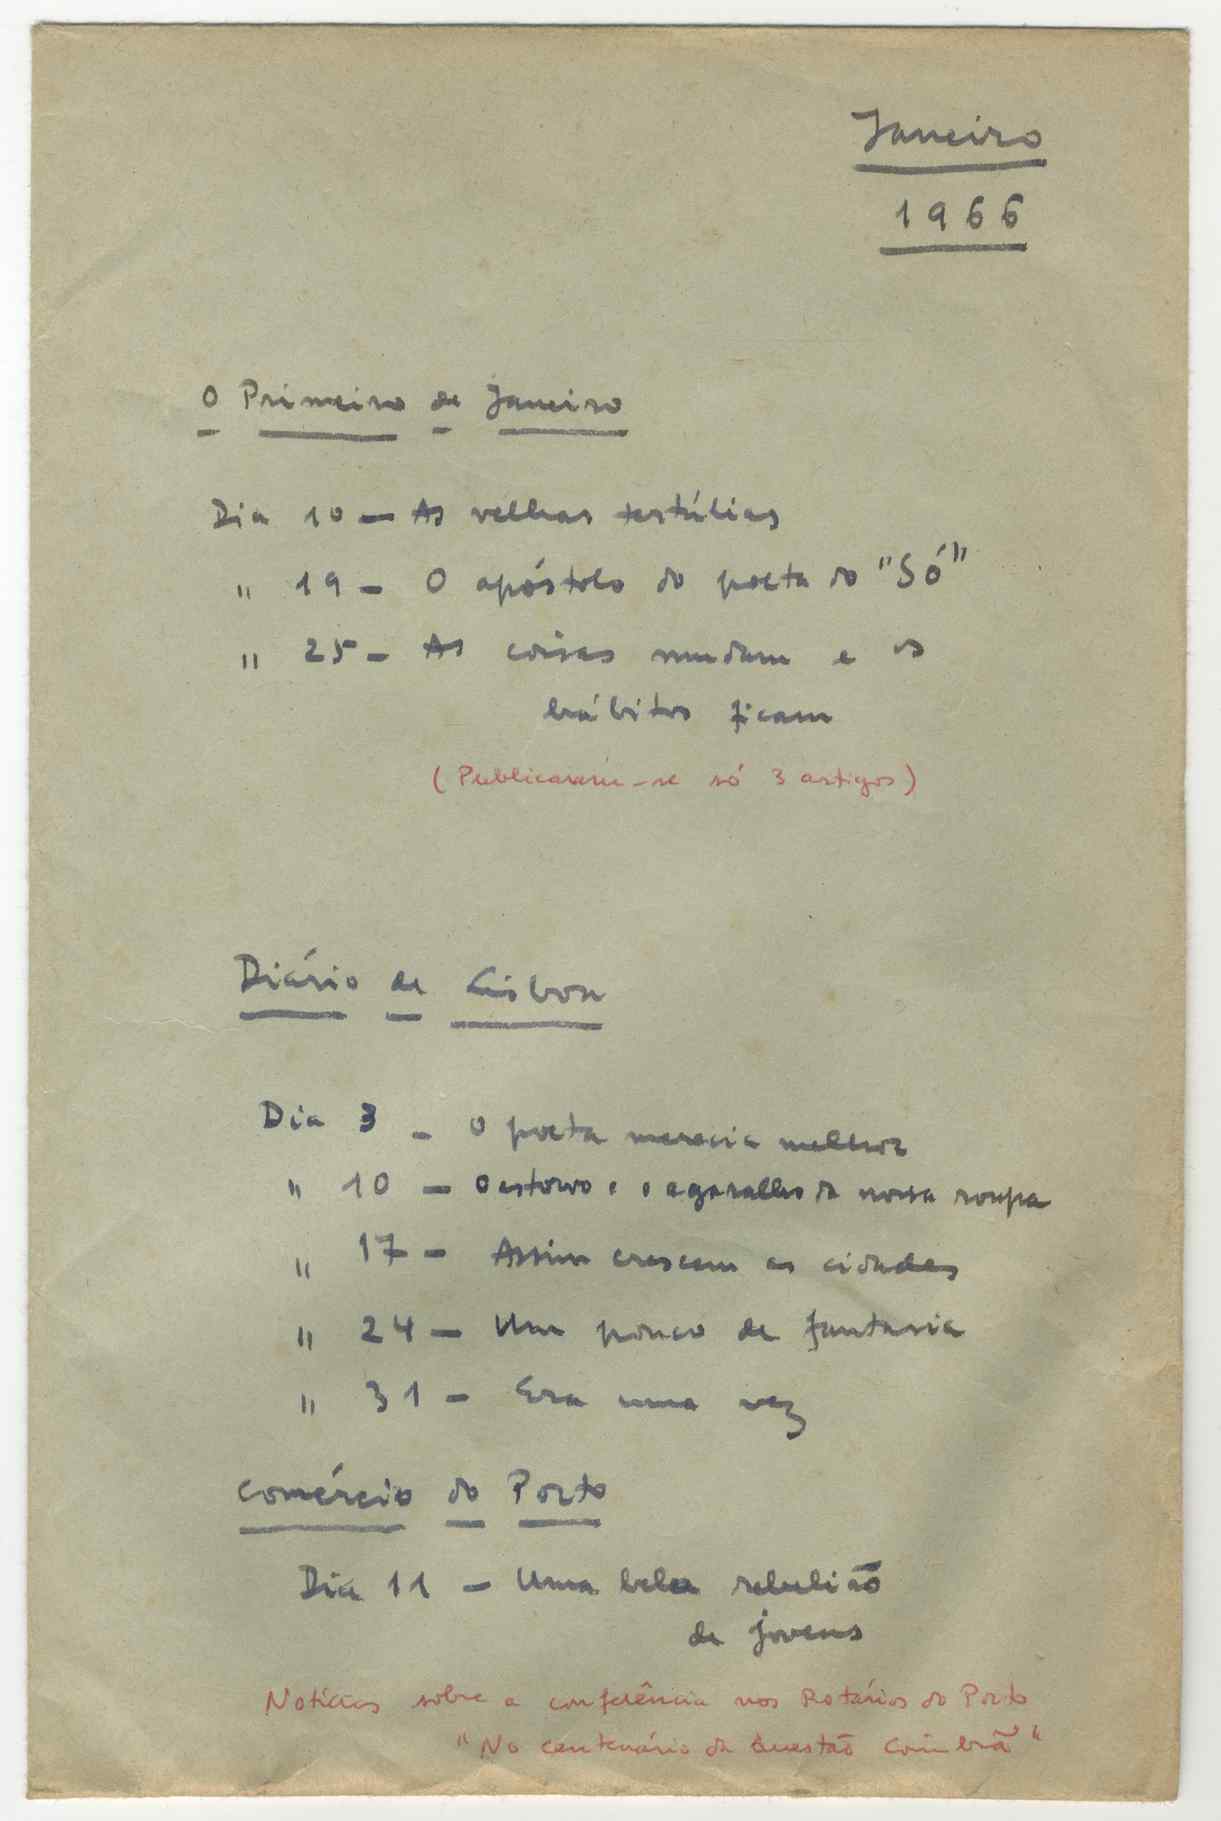 Janeiro
1966
O Primeiro de Janeiro
Dia 10 - As velhas tertúlias
" 19 - O apóstolo do poeta do "Só"
" 25 - As coisas mudam e os
hábitos ficam
(Publicaram-se só 3 artigos)
Diário de Lisboa
Dia 3 - O poeta merecia melhor
" 10 - O estorvo e o agasalho da nossa roupa
" 17 - Assim crescem as cidades
" 24 - Um pouco de fantasia
" 31 - Era uma vez
Comércio do Porto
Dia 11 - Uma bela rebelião
de jovens
Notícias sobre a conferência nos Rotários do Porto
"No centenário da Questão Coimbrã"